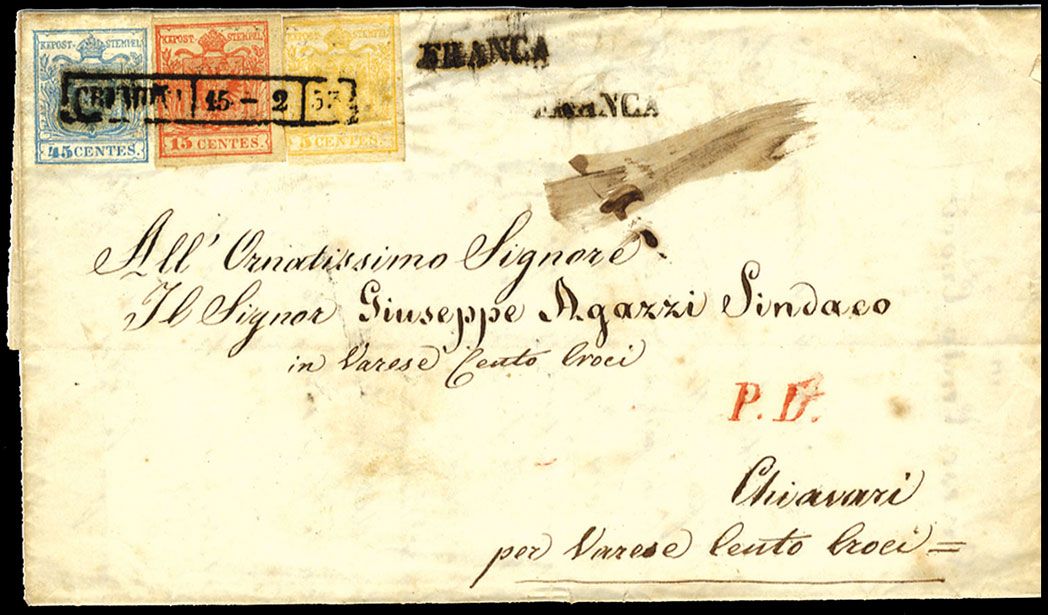 KKPOST-STEMPEL KKPOST-STEMPEL KKPOST-STEMPEL
15 - 2 53
45 CENTES. 15 CENTES. 5 CENTES.
FRANCA
FRANCA
All' Ornatissimo Signore
Il Signor Giuseppe Agazzi Sindaco
in Varese Cento Croci
P. D.
Chiavari
per Varese Cento Croci =